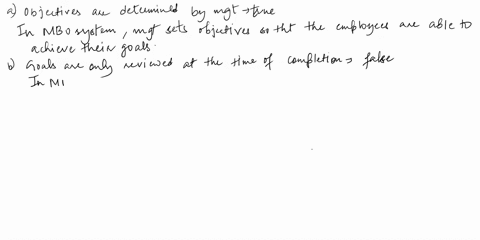 a) Objectives are determined by mgt → true
In MBO system, mgt sets objectives so tht the employees are able to
achieve their goals.
b) Goals are only reviewed at the time of completion → false
In MI